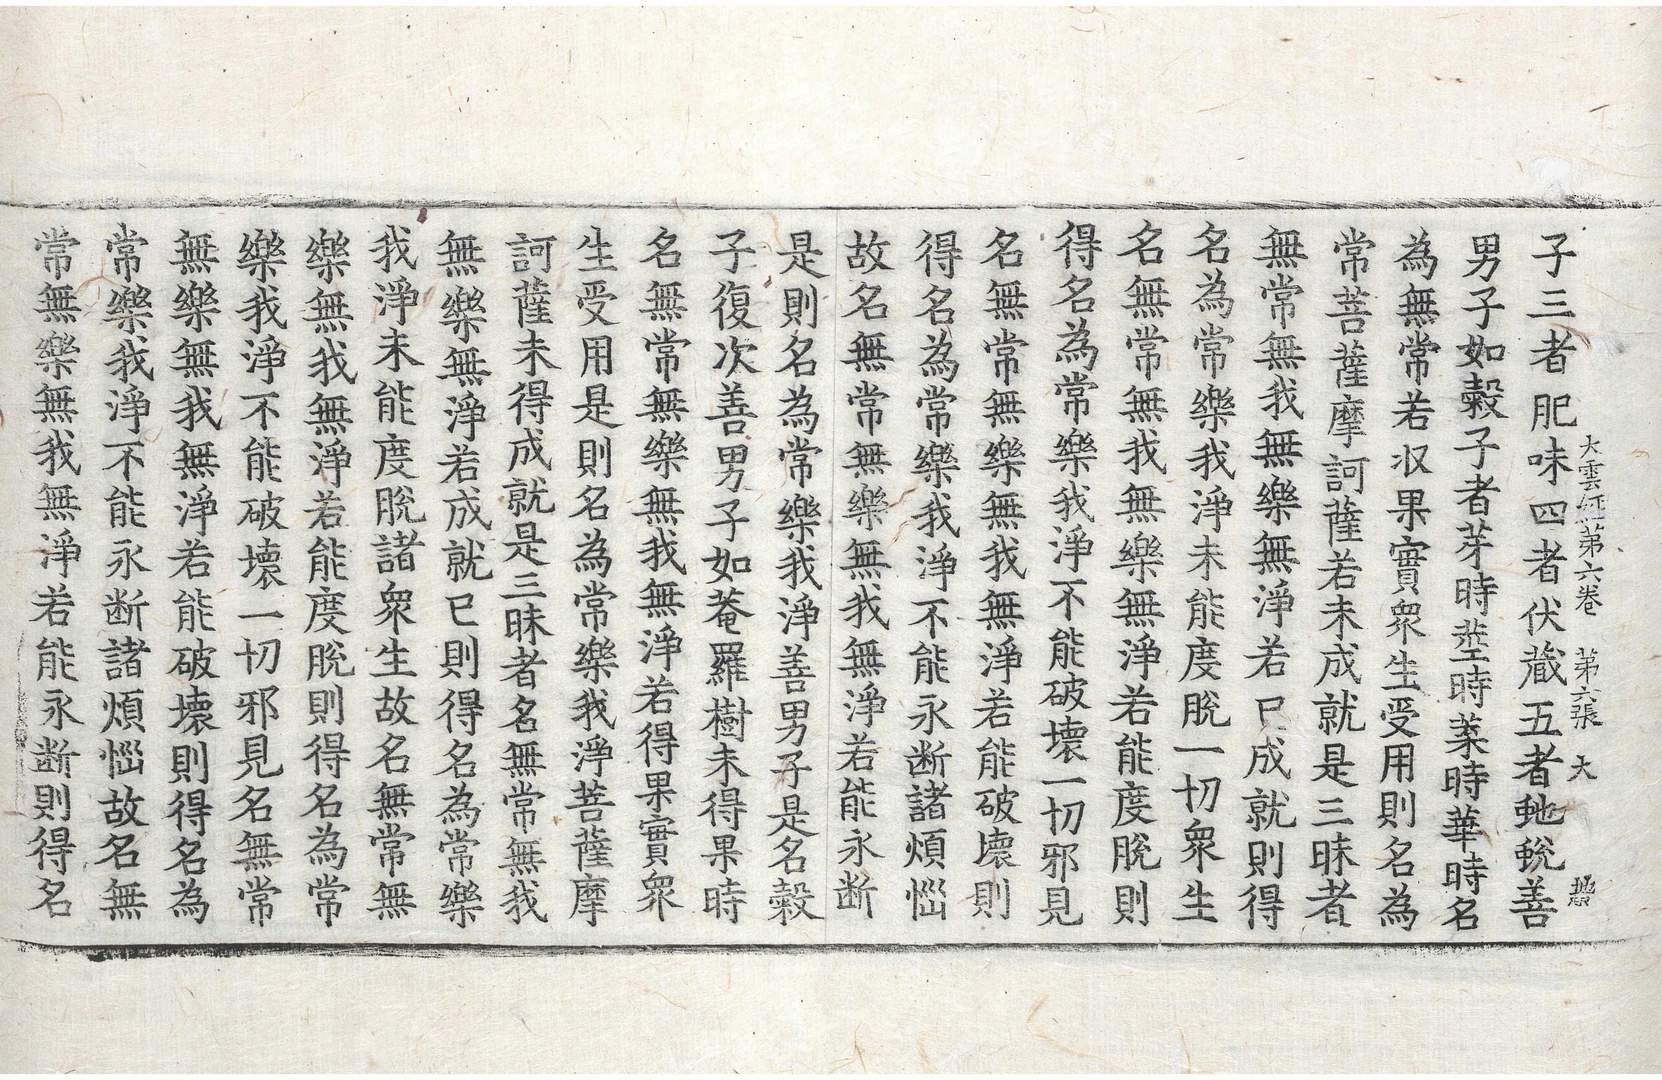 大雲經第六卷 第六張 大
子三者肥味四者伏藏五者虵蛻善
男子如糓子者芽時莖時葉時華時名
為無常若収果實衆生受用則名為
常菩薩摩訶薩若未成就是三昧者
無常無我無樂無淨若已成就則得
名為常樂我淨未能度脫一切衆生
名無常無我無樂無淨若能度脫則
得名為常樂我淨不能破壞一切邪見
名無常無樂無我無淨若能破壞則
得名為常樂我淨不能永断諸煩惱
故名無常無樂無我無淨若能永断
是則名為常樂我淨善男子是名糓
子復次善男子如菴羅樹未得果時
名無常無樂無我無淨若得果實衆
生受用是則名為常樂我淨菩薩摩
訶薩未得成就是三昧者名無常無我
無樂無淨若成就已則得名為常樂
我淨未能度脫諸衆生故名無常無
樂無我無淨若能度脫則得名為常
樂我淨不能破壞一切邪見名無常
無樂無我無淨若能破壞則得名為
常樂我淨不能永断諸煩惱故名無
常無樂無我無淨若能永断則得名